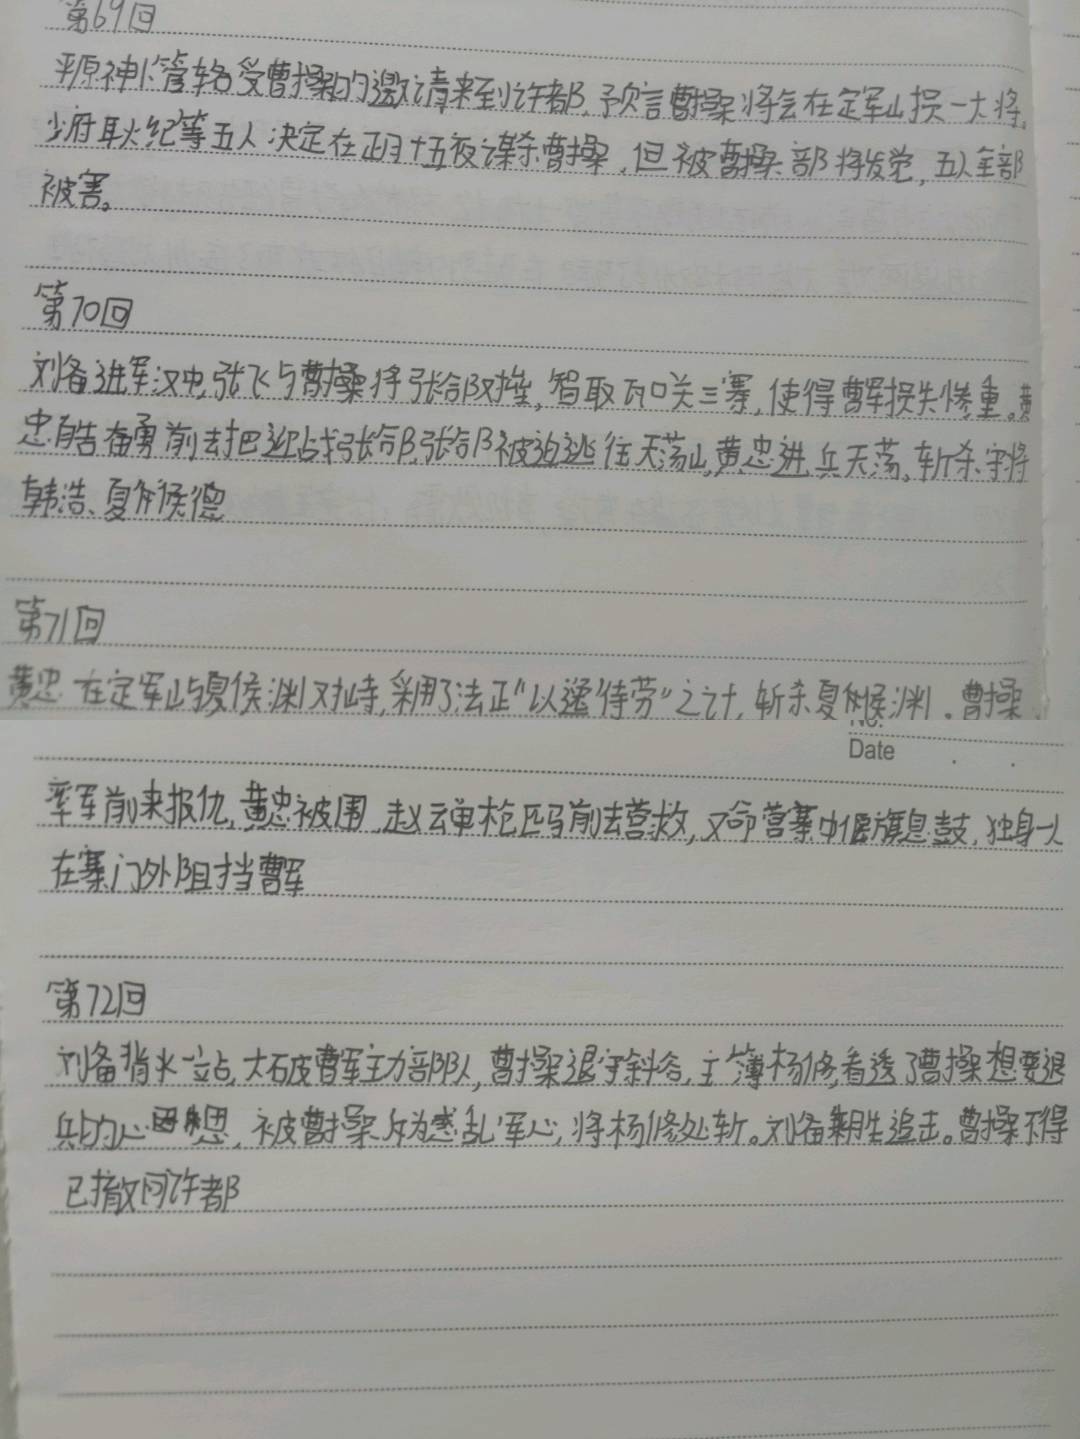 第69回
平原神卜管辂受曹操的邀请来到许都,预言曹操将会在定军山损一大将,
少府耿纪等五人决定在正月十五夜谋杀曹操,但被曹操部将发觉,五人全部
被害。
第70回
刘备进军汉中,张飞与曹操将张郃对撞,智取瓦口关三寨,使得曹军损失惨重。黄
忠自告奋勇前去把迎战张郃,张郃被迫逃往天荡山,黄忠进兵天荡,斩杀守将
韩浩、夏侯德
第71回
黄忠在定军山与夏侯渊对峙,采用了法正“以逸待劳”之计,斩杀夏侯渊。曹操
No.
Date
率军前来报仇,黄忠被围,赵云单枪匹马前去营救,又命营寨中偃旗息鼓,独身一人
在寨门外阻挡曹军
第72回
刘备背水一站,大破曹军主力部队,曹操退守斜谷,主簿杨修,看透了曹操想要退
兵的心思,被曹操斥为惑乱军心,将杨修处斩。刘备乘胜追击。曹操不得
已撤回许都